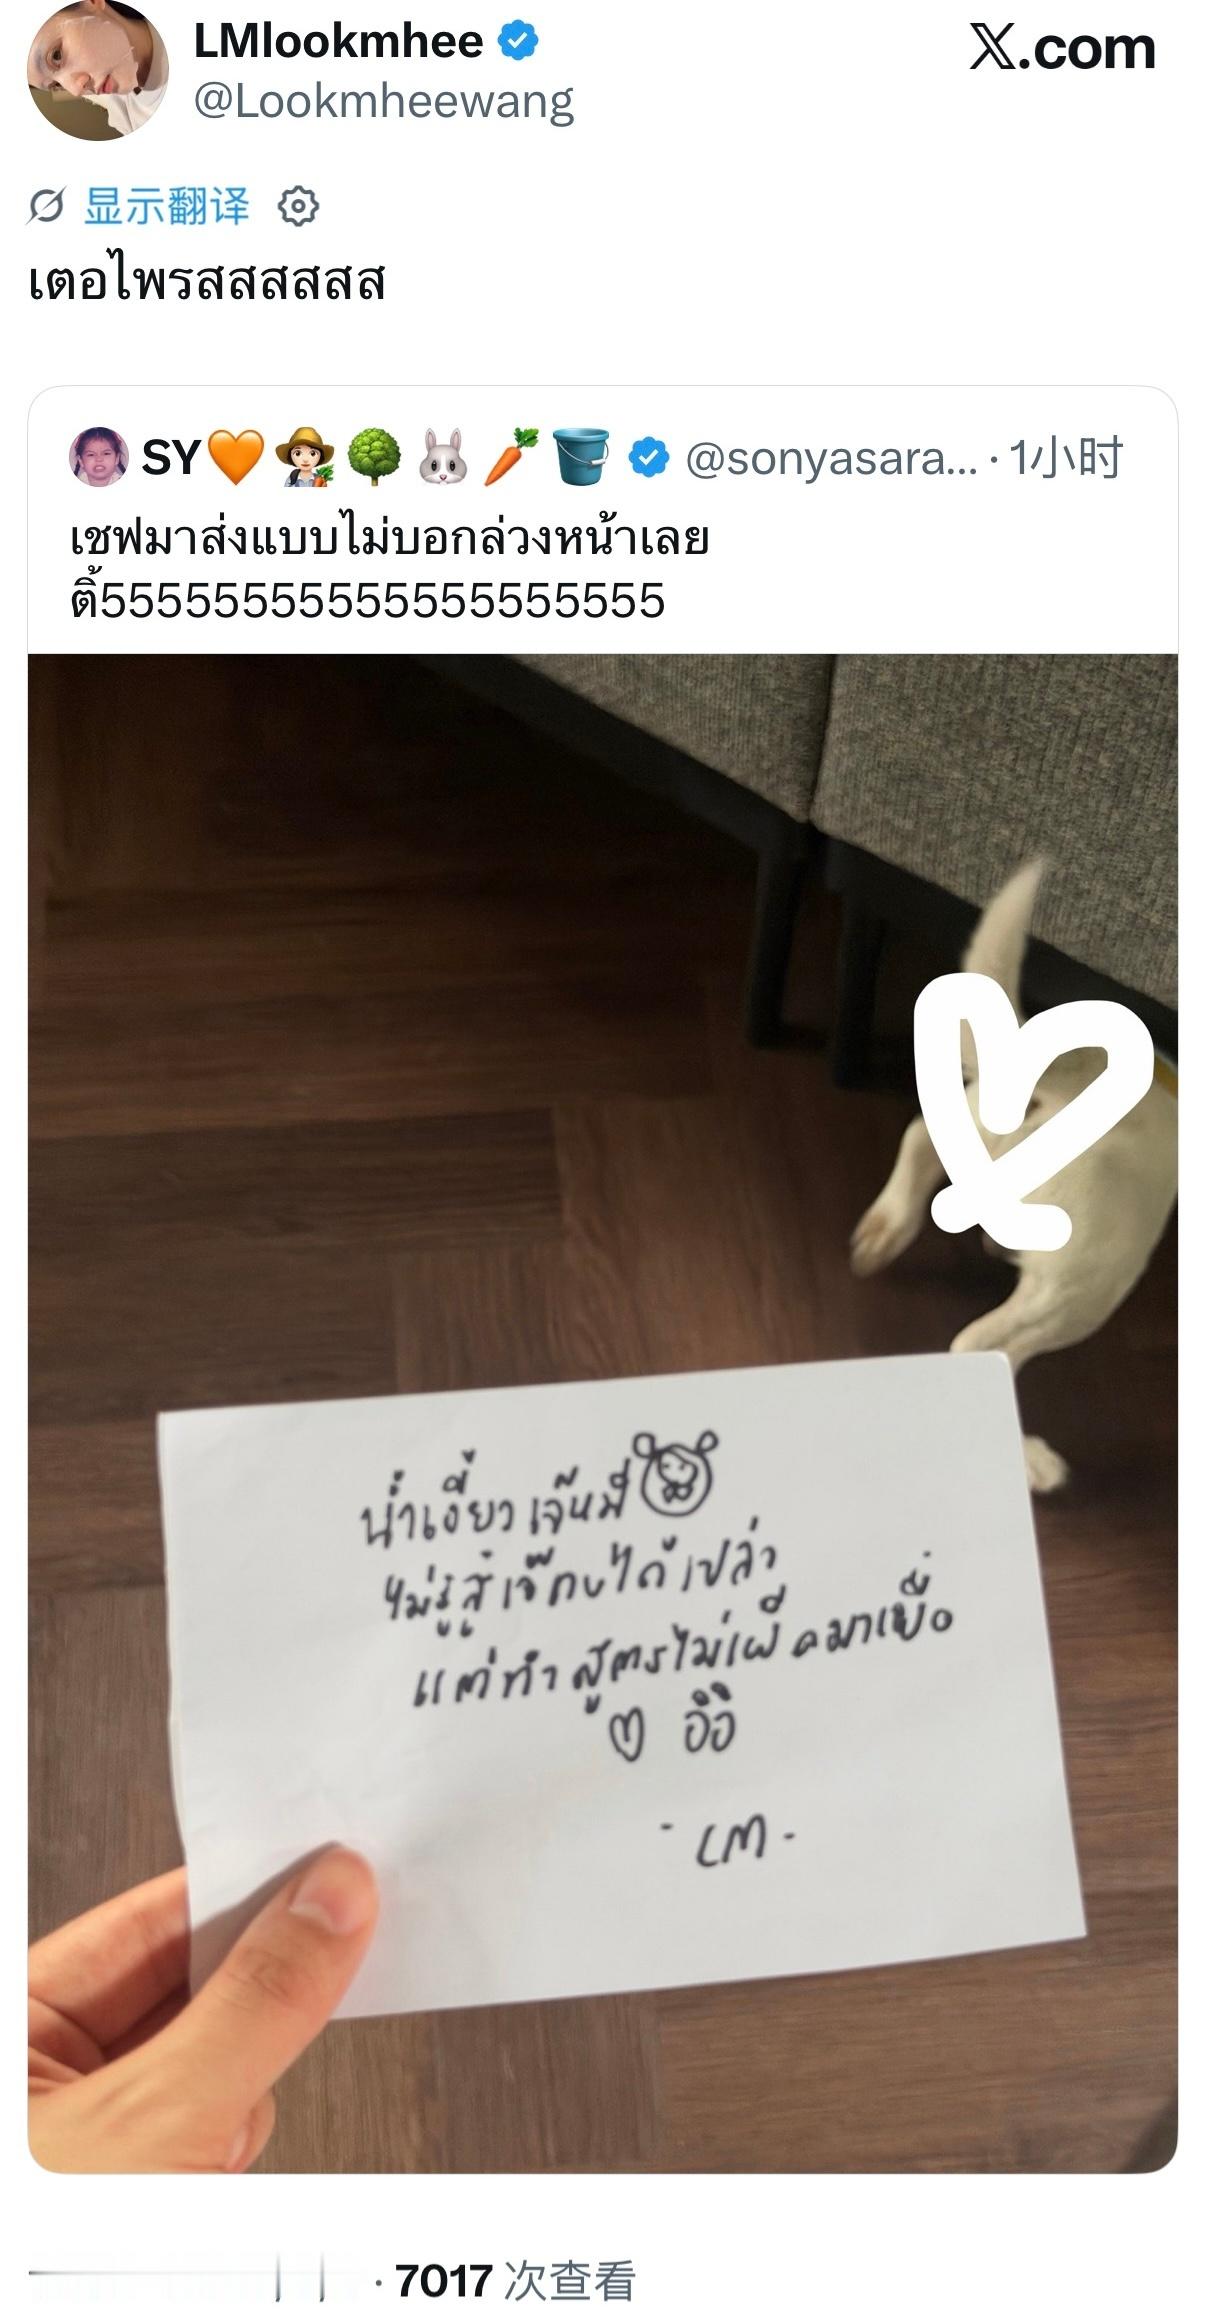 LMlookmhee
X.com
@Lookmheewang
显示翻译
เตอไพรสสสสสส
SY🧡👩🏻‍🌾🌳🐰🥕🪣 @sonyasara... · 1小时
เชฟมาส่งแบบไม่บอกล่วงหน้าเลย
ติ้55555555555555555555
น้ำเงี้ยว เจ๊หมี
ไม่รู้สู้เจ๊กบได้เปล่า
แต่ทำสูตรไม่เผ็ดมาเผื่อ
♡ อิอิ
- LM -
· 7017 次查看